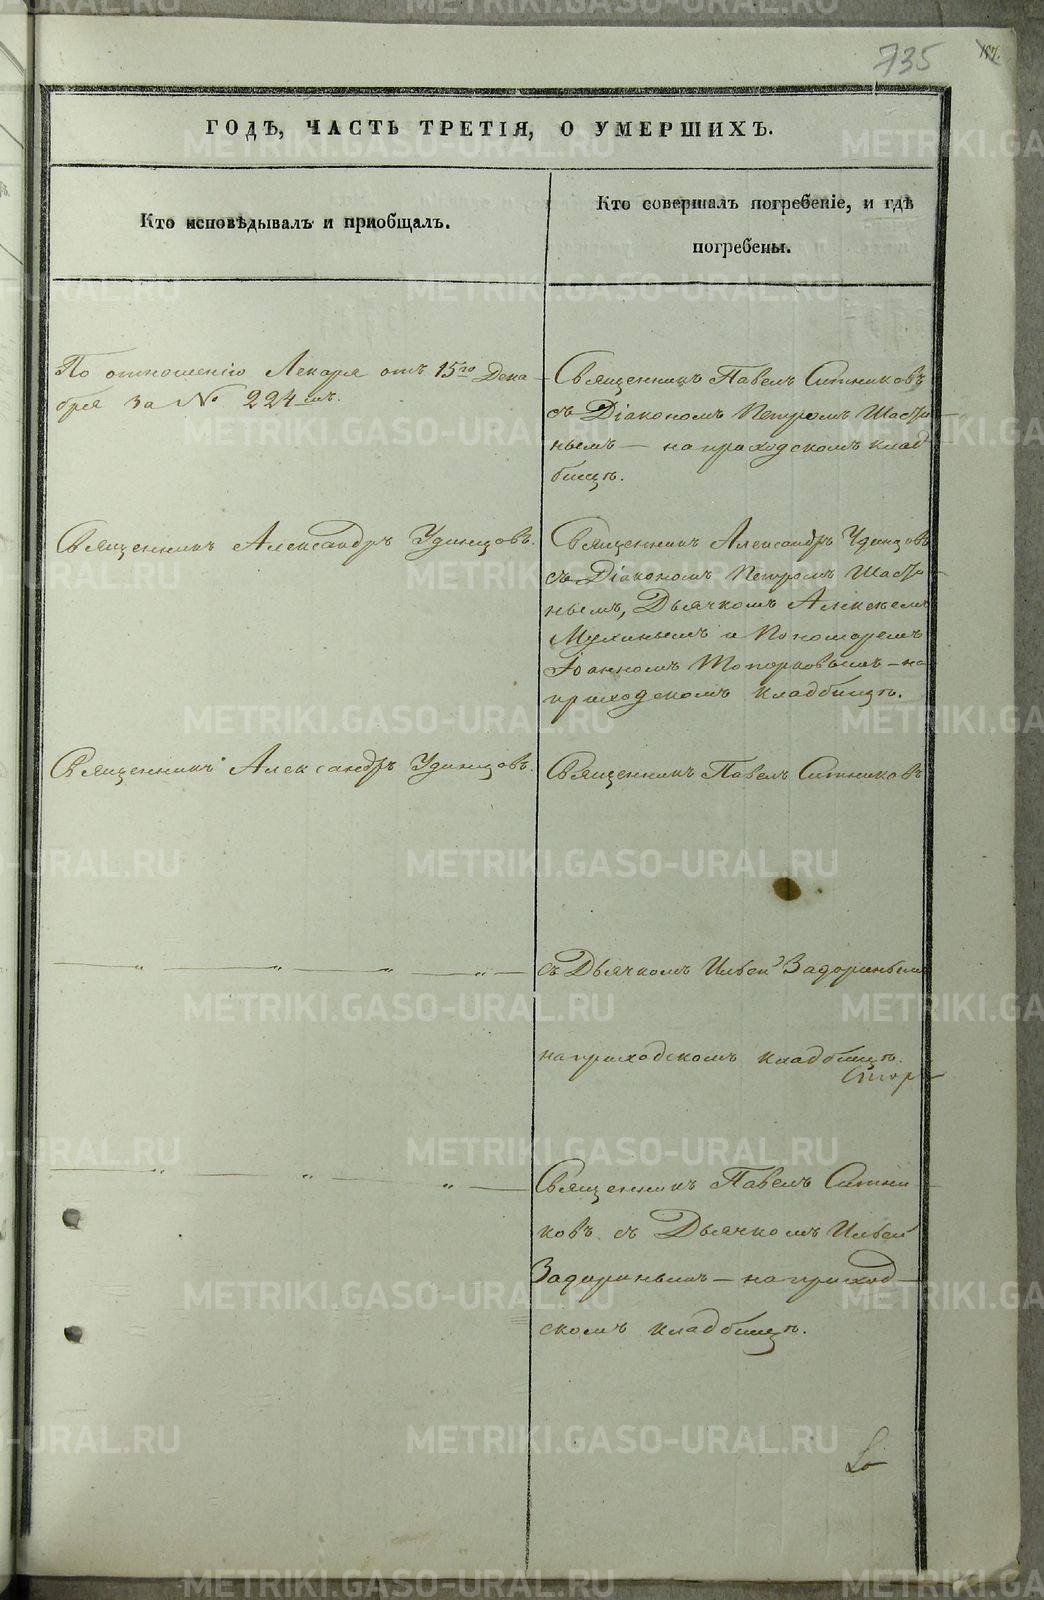 735
187.
ГОДѢ, ЧАСТЬ ТРЕТІЯ, О УМЕРШИХЪ.
Кто исповѣдывалъ и пріобщалъ.
Кто совершалъ погребеніе, и гдѣ
погребены.
По отношенію Лекаря отъ 15го Дека
бря за № 224мъ.
Священникъ Павелъ Ситниковъ
съ Діакономъ Петромъ
нымъ — на приходскомъ клад
бищѣ.
Священникъ Александръ Удинцовъ.
Священникъ Александръ Удинцовъ
съ Діакономъ Петромъ
нымъ, Дьячкомъ Алексѣемъ
Мухинымъ и Пономаремъ
Іоанномъ Топорковымъ — на
приходскомъ кладбищѣ.
Священникъ Александръ Удинцовъ.
Священникъ Павелъ Ситниковъ
— „ — „ — „ — „ —
съ Дьячкомъ Ильей Задоринымъ
на приходскомъ кладбищѣ.
— „ — „ — „ —
Священникъ Павелъ Ситни
ковъ съ Дьячкомъ Ильей
Задоринымъ — на приход
скомъ кладбищѣ.
METRIKI.GASO-URAL.RU